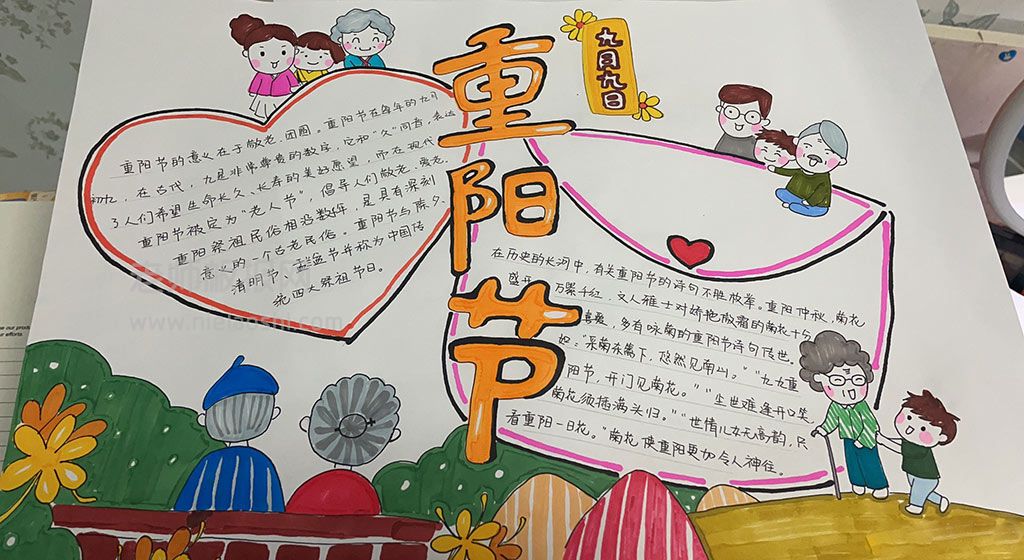 重阳节
九月九日
重阳节的意义在于敬老、团圆。重阳节在每年的九月
初九，在古代，九是非常尊贵的数字，它和“久”同音，表达
了人们希望生命长久、长寿的美好愿望，而在现代
重阳节被定为“老人节”，倡导人们敬老、爱老。
重阳祭祖民俗相沿数年，是具有深刻
意义的一个古老民俗。重阳节与除夕、
清明节、盂兰盆节并称为中国传
统四大祭祖节日。
在历史的长河中，有关重阳节的诗句不胜枚举。重阳仲秋，菊花
盛开，万紫千红，文人雅士对娇艳傲霜的菊花十分
喜爱，多有咏菊的重阳节诗句传世。
如：采菊东篱下，悠然见南山。”“九九重
阳节，开门见菊花。”“尘世难逢开口笑，
菊花须插满头归。”“世情儿女无高韵，只
看重阳一日花。”菊花使重阳更加令人神往。